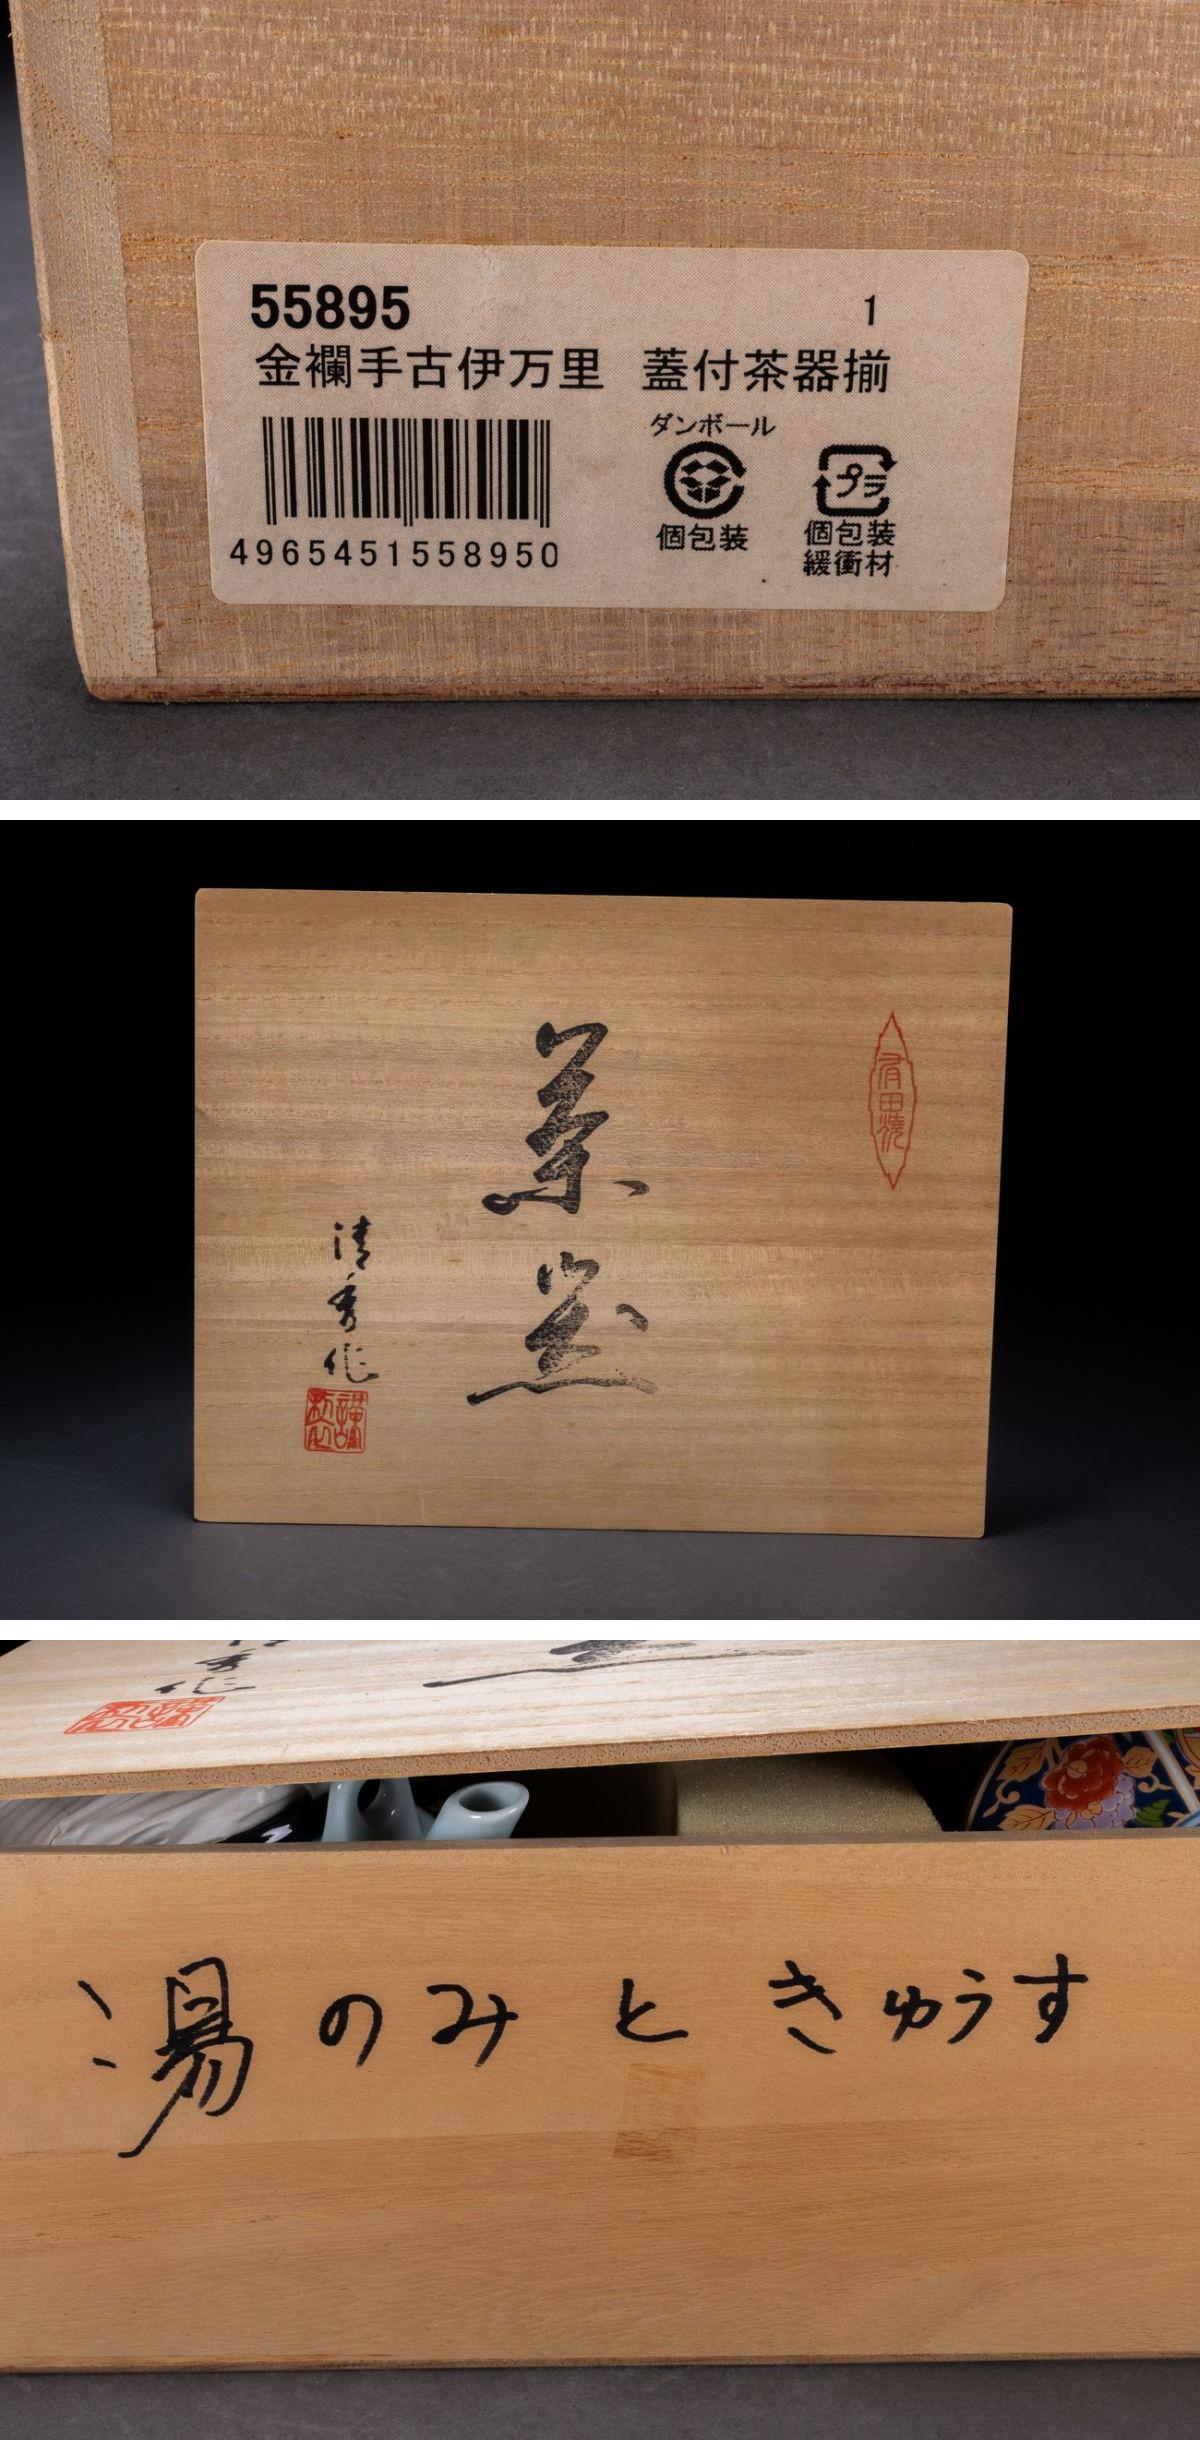 55895
1
金襴手古伊万里 蓋付茶器揃
ダンボール
プラ
個包装
個包装
緩衝材
4965451558950
有田焼
茶器
清秀作
謹製
秀作
謹製
湯のみときゅうす